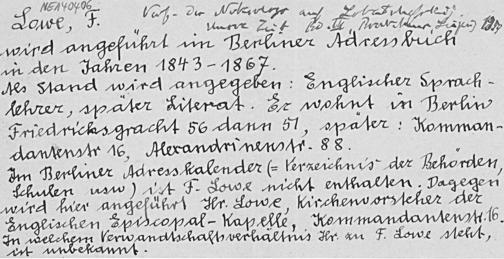 NEA40406
Lowe, F. Verf. der Nekrologe auf
Unsere Zeit (Brockhaus, Leipzig)
wird angeführt im Berliner Adressbuch
in den Jahren 1843-1867.
Als Stand wird angegeben: Englischer Sprach-
lehrer, später Literat. Er wohnt in Berlin
Friedrichsgracht 56 dann 51, später: Komman-
dantenstr 16, Alexandrinenstr. 88.
Im Berliner Adresskalender (= Verzeichnis der Behörden,
Schulen usw) ist F. Lowe nicht enthalten. Dagegen
wird hier angeführt Hr. Lowe, Kirchenvorsteher der
Englischen Episcopal-Kapelle, Kommandantenstr. 16.
In welchem Verwandtschaftsverhältnis Hr. zu F. Lowe steht,
ist unbekannt.